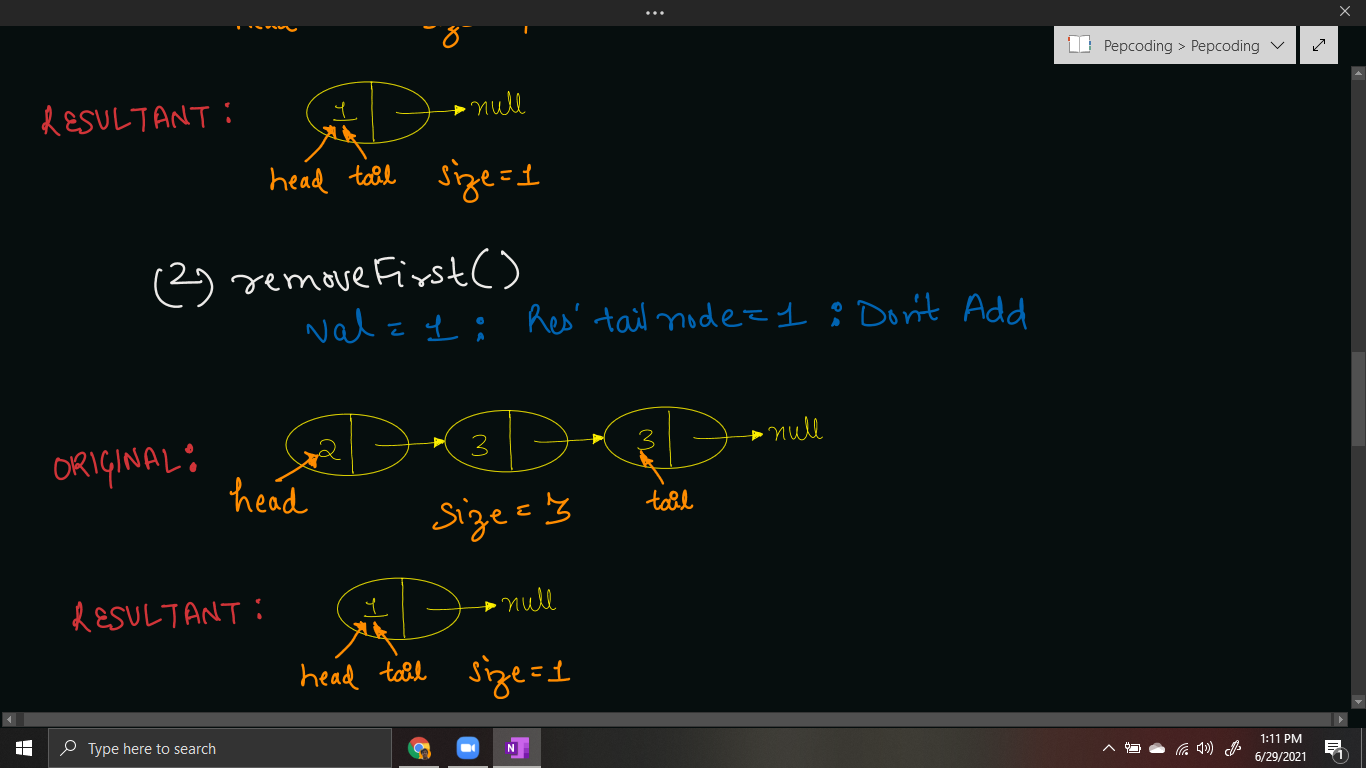 Pepcoding > Pepcoding
RESULTANT: 1 → null
head tail size = 1
(2) removeFirst()
Val = 1 : Res' tail node = 1 : Don't Add
ORIGINAL: 2 → 3 → 3 → null
head size = 3 tail
RESULTANT: 1 → null
head tail size = 1
Type here to search
1:11 PM
6/29/2021
1